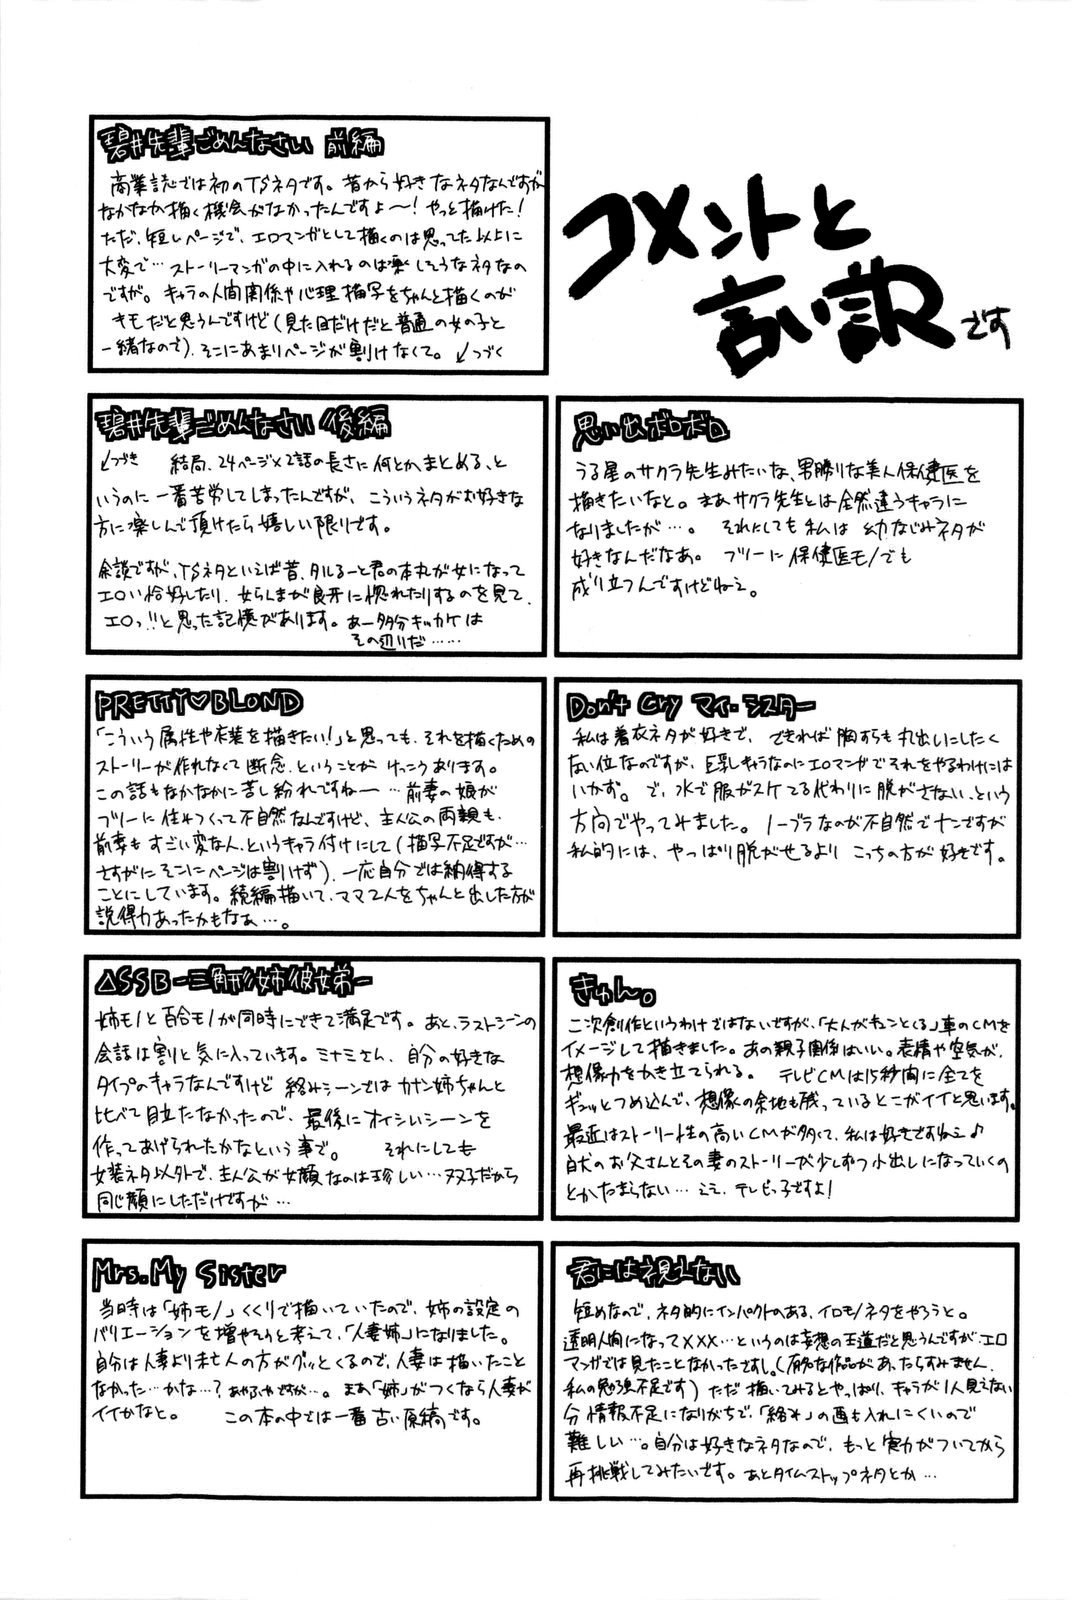 コメントと
言い訳です
碧井先輩ごめんなさい 前編
商業誌では初のTSネタです。昔から好きなネタなんですが
なかなか描く機会がなかったんですよ〜!やっと描けた!
ただ、短いページで、エロマンガとして描くのは思ってた以上に
大変で…ストーリーマンガの中に入れるのは楽しそうなネタなの
ですが。キャラの人間関係や心理描写をちゃんと描くのが
キモだと思うんですけど(見た目だけだと普通の女の子と
一緒なので)、そこにあまりページが割けなくて。↙つづく
碧井先輩ごめんなさい 後編
↙つづき 結局、24ページ×2話の長さに何とかまとめる、と
いうのに一番苦労してしまったんですが、こういうネタがお好きな
方に楽しんで頂けたら嬉しい限りです。
余談ですが、TSネタといえば昔、タルるート君の本丸が女になって
エロい恰好したり、女らんまが良牙に惚れたりするのを見て、
エロッ!!と思った記憶があります。あー多分キッカケは
その辺りだ……
思い出ボロボロ
うる星のサクラ先生みたいな、男勝りな美人保健医を
描きたいなと。まあサクラ先生とは全然違うキャラに
なりましたが…。それにしても私は幼なじみネタが
好きなんだなあ。フツーに保健医モノでも
成り立つんですけどねえ。
PRETTY♡BLOND
「こういう属性や衣装を描きたい!」と思っても、それを描くための
ストーリーが作れなくて断念、ということがけっこうあります。
この話もなかなかに苦し紛れですね〜…前妻の娘が
フツーに住みつくって不自然なんですけど、主人公の両親も、
前妻もすごい変な人、というキャラ付けにして(描写不足ですが…
さすがにそこにページは割けず)、一応自分では納得する
ことにしています。続編描いて、ママ2人をちゃんと出した方が
説得力あったかもなぁ…。
Don't Cry マイ・シスター
私は着衣ネタが好きで、できれば胸すらも丸出しにしたく
ない位なのですが、巨乳キャラなのにエロマンガでそれをやるわけには
いかず。で、水で服がスケてる代わりに脱がさない、という
方向でやってみました。ノーブラなのが不自然でナンですが
私的には、やっぱり脱がせるよりこっちの方が好きです。
△SSB-三角形姉彼妹-
姉モノと百合モノが同時にできて満足です。あと、ラストシーンの
会話は割と気に入っています。ミナミさん、自分の好きな
タイプのキャラなんですけど絡みシーンではカナン姉ちゃんと
比べて目立たなかったので、最後にオイシいシーンを
作ってあげられたかなという事で。それにしても
女装ネタ以外で、主人公が女顔なのは珍しい…双子だから
同じ顔にしただけですが…
きゅん。
二次創作というわけではないですが、「大人がキュンとくる」車のCMを
イメージして描きました。あの親子関係はいい。表情や空気が、
想像力をかき立てられる。テレビCMは15秒間に全てを
ギュッとつめ込んで、想像の余地も残っているとこがイイと思います。
最近はストーリー性の高いCMが多くて、私は好きですねえ♪
白犬のお父さんとその妻のストーリーが少しずつ小出しになっていくの
とかたまらない…ええ、テレビっ子ですよ!
Mrs.My Sister
当時は「姉モノ」くくりで描いていたので、姉の設定の
バリエーションを増やそうと考えて、「人妻姉」になりました。
自分は人妻より未亡人の方がグッとくるので、人妻は描いたこと
なかった…かな…?あやふやですが…。まあ「姉」がつくなら人妻が
イイかなと。この本の中では一番古い原稿です。
君には視えない
短めなので、ネタ的にインパクトのある、イロモノネタをやろうと。
透明人間になって×××…というのは妄想の王道だと思うんですが、エロ
マンガでは見たことなかったですし。(有名な作品があったらすみません、
私の勉強不足です)ただ描いてみるとやっぱり、キャラが1人見えない
分情報不足になりがちで、「絡み」の画も入れにくいので
難しい…。自分は好きなネタなので、もっと実力がついてから
再挑戦してみたいです。あとタイムストップネタとか…